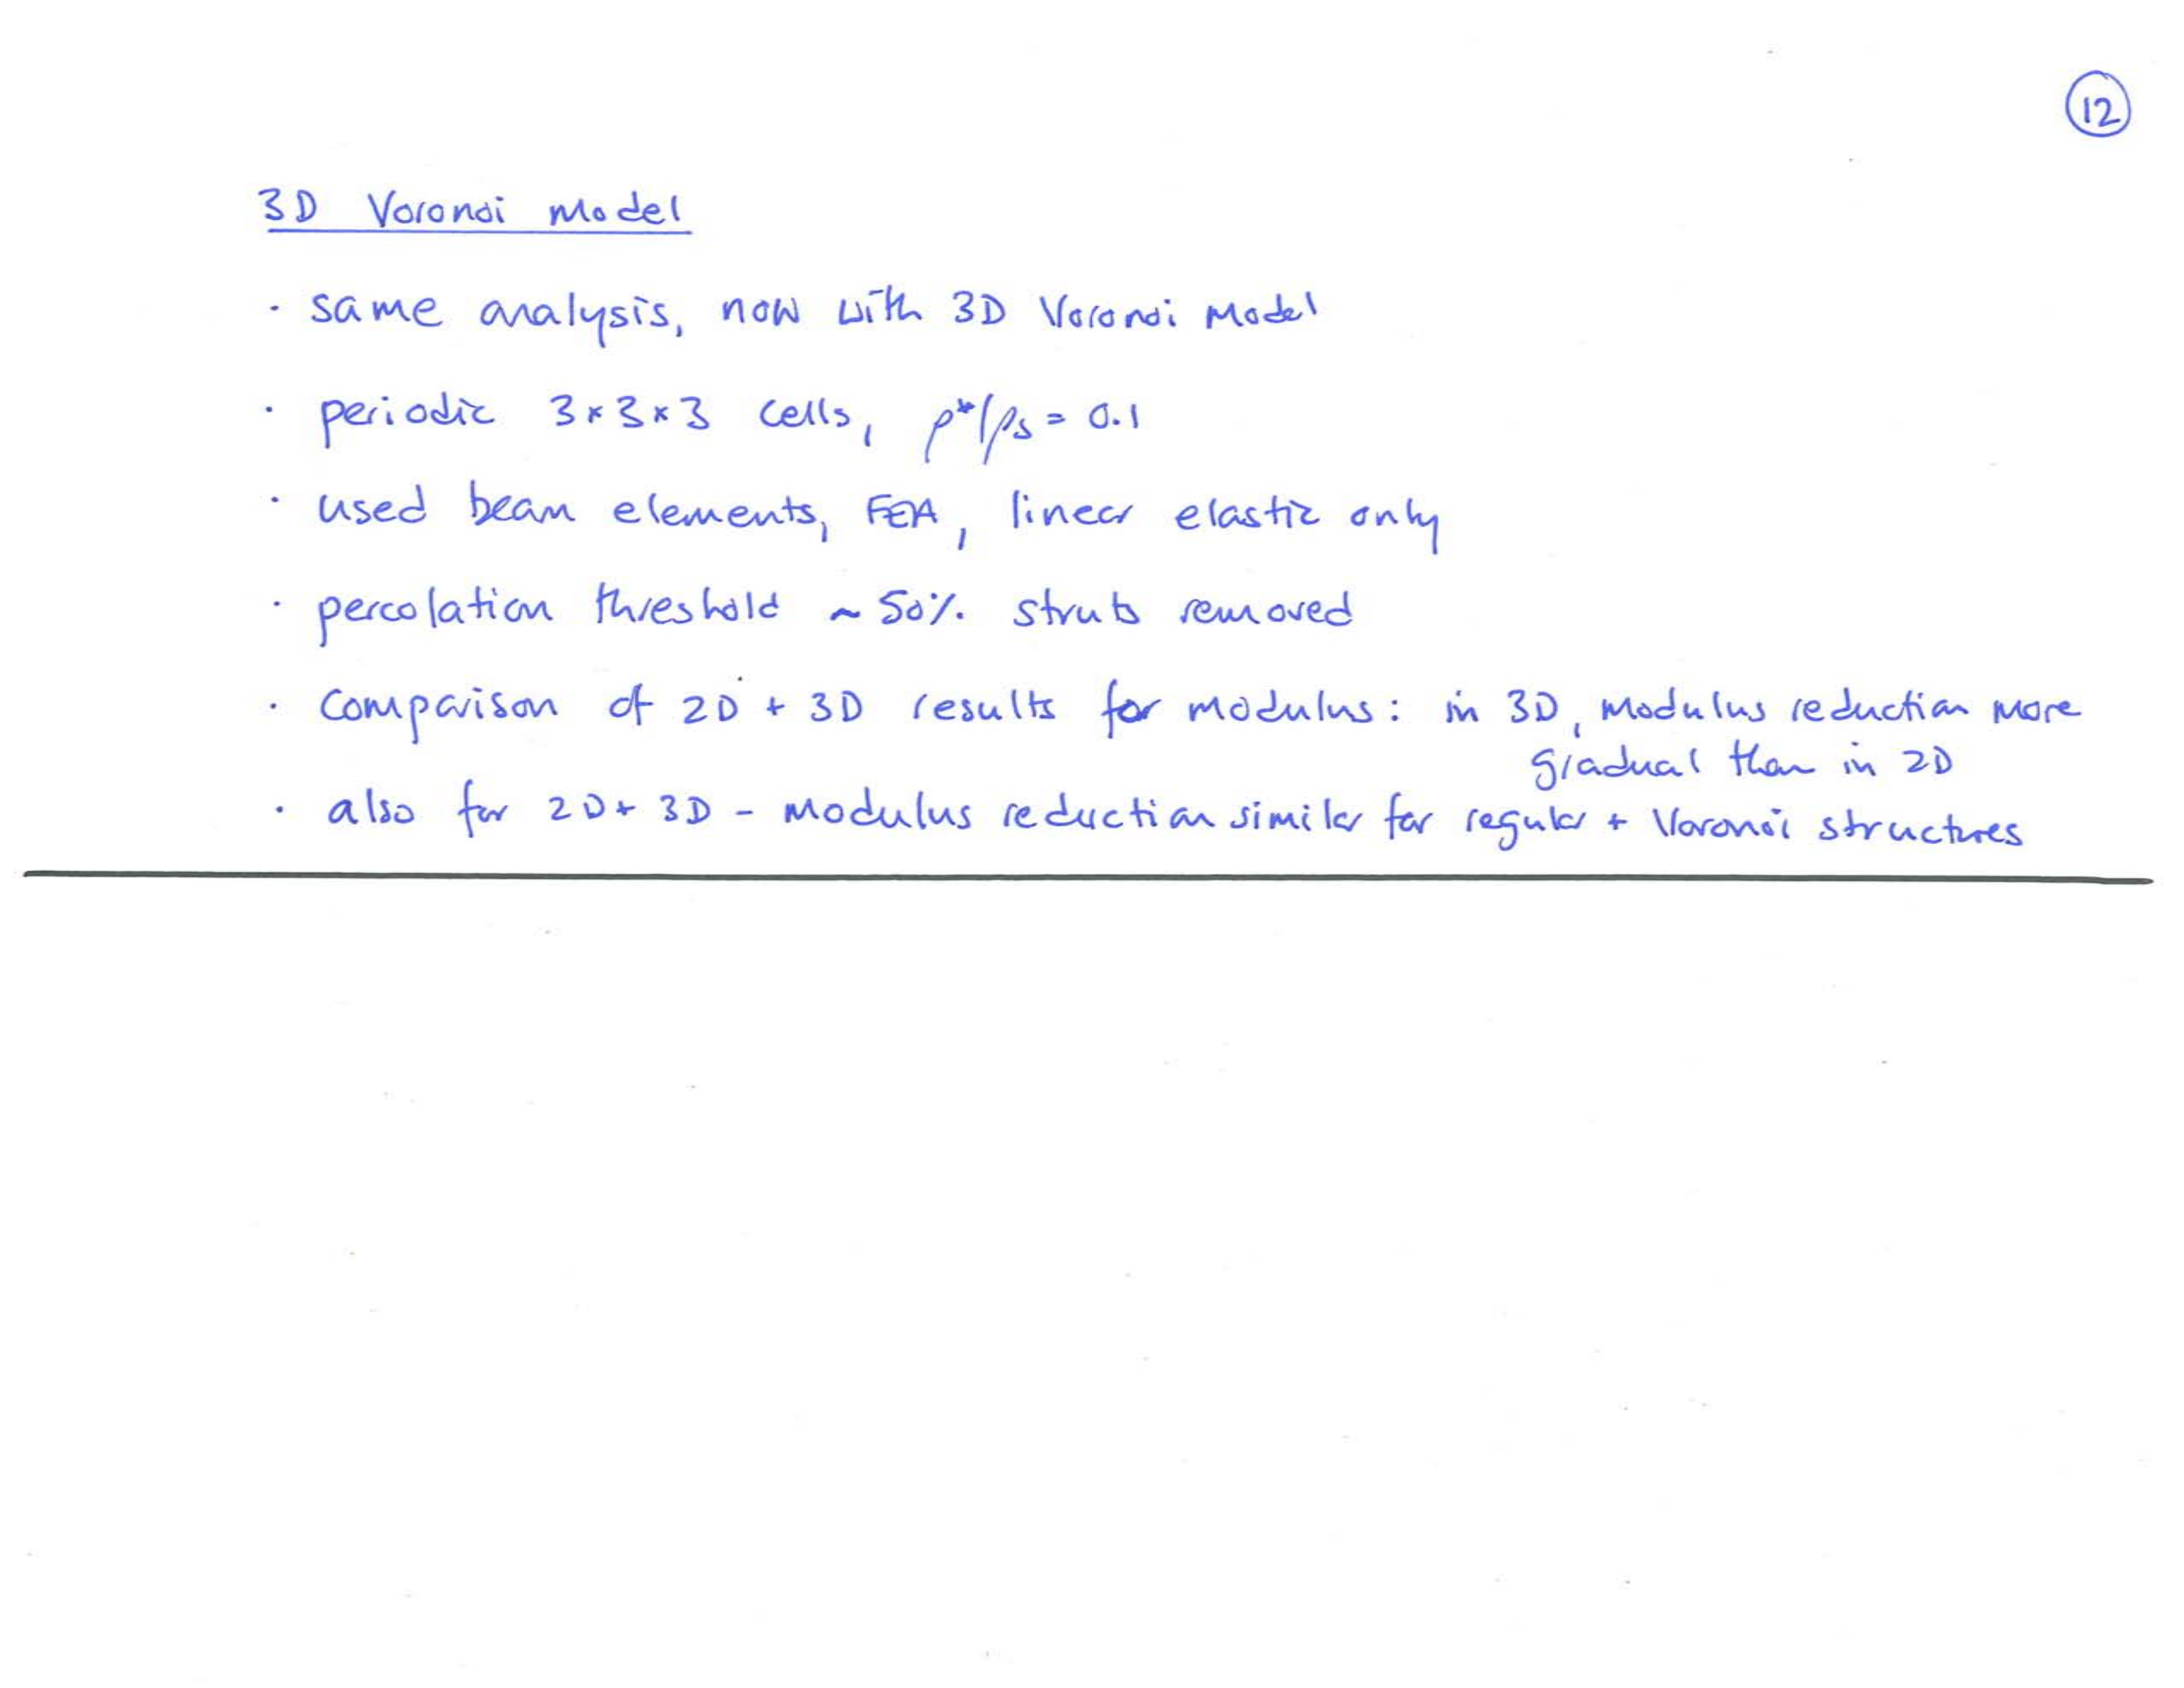 12
3D Voronoi Model
· same analysis, now with 3D Voronoi Model
· periodic 3×3×3 cells, ρ*/ρs = 0.1
· used beam elements, FEA, linear elastic only
· percolation threshold ~ 50% struts removed
· Comparison of 2D + 3D results for modulus: in 3D, modulus reduction more
gradual than in 2D
· also for 2D + 3D - modulus reduction similar for regular + Voronoi structures